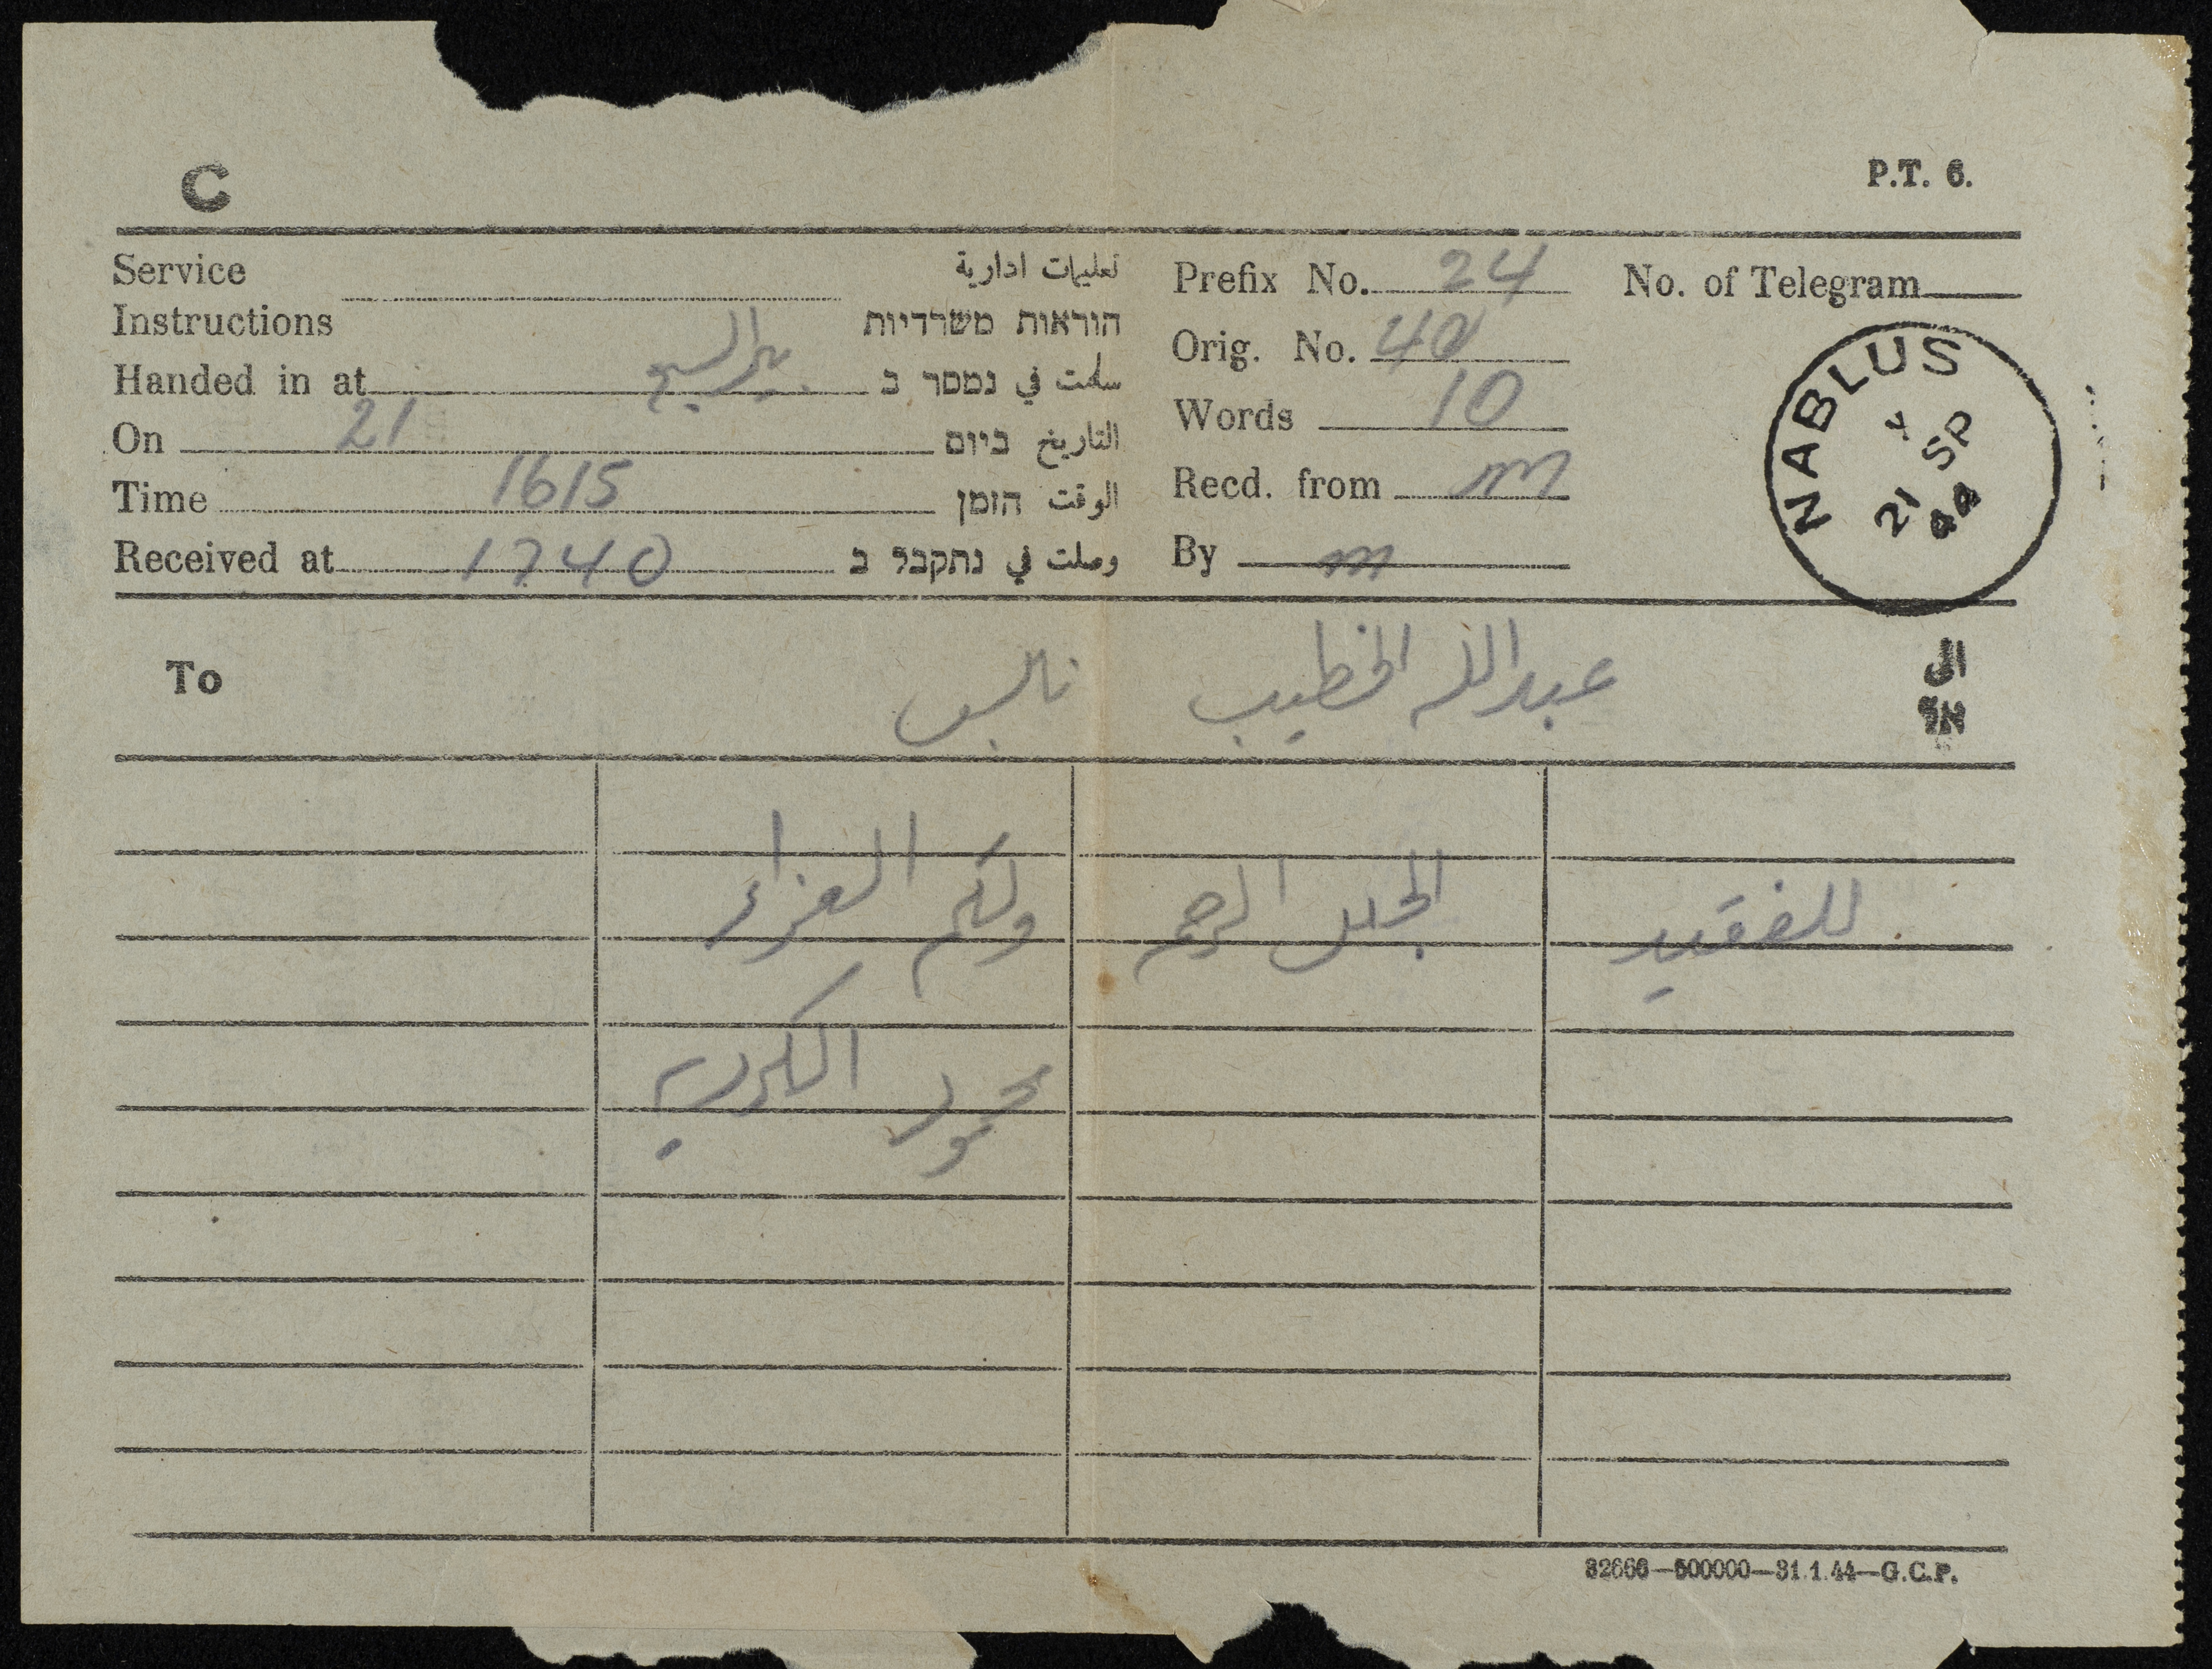 C
P.T. 6.
Service تعليمات ادارية
Instructions הוראות משרדיות
Handed in at بير السبع سلمت في נמסר ב
On 21 التاريخ ביום
Time 1615 الوقت הזמן
Received at 1740 وصلت في נתקבל ב
Prefix No. 24 No. of Telegram
Orig. No. 40
Words 10
Recd. from m
By m
NABLUS
21 SP
44
To عبدالله الخطيب نابلس الى
אל
للفقيد الجليل الرحمه ولكم العزاء
محمود الكردي
32666—500000—31.1.44—G.C.P.